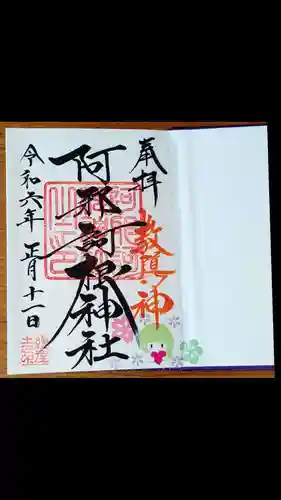 奉拝
教祖神
阿邪訶根神社
令和六年 正月十一日